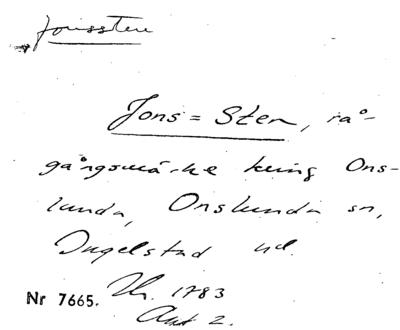 Jonssten
Jons=Sten, rå-
gångsmärke kring Ons-
lunda, Onslunda sn,
Ingelstad hd.
Nr 7665. Th. 1783
Akt 2.